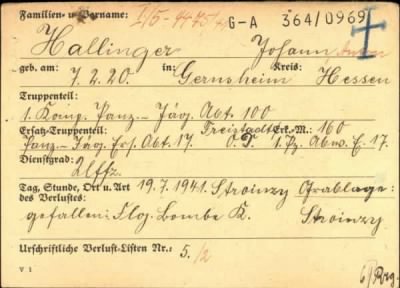 Familien- u. Vorname: I/5-4475/41 G-A 364/0969
Hallinger Johann
geb. am: in: Kreis:
7.2.20. Gernsheim Hessen
Truppenteil:
1. Komp. Panz.-Jäg. Abt. 100
Ersatz-Truppenteil: Freistadt Erk.-M.: 160
Panz.-Jäg. Ers. Abt. 17 O.D. 1. Pz. Abw. E. 17.
Dienstgrad:
Uffz.
Tag, Stunde, Ort u. Art des Verlustes: 19.7.1941. Stroinzy Grablage:
gefallen: Flg. Bombe K. Stroinzy
Urschriftliche Verlust-Listen Nr.: 5./2
V 1